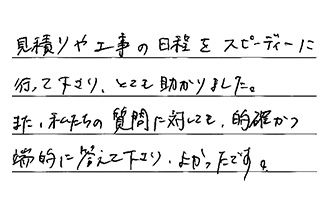 見積りや工事の日程をスピーディーに
行って下さり、とても助かりました。
また、私たちの質問に対しても、的確かつ
端的に答えて下さり、よかったです。